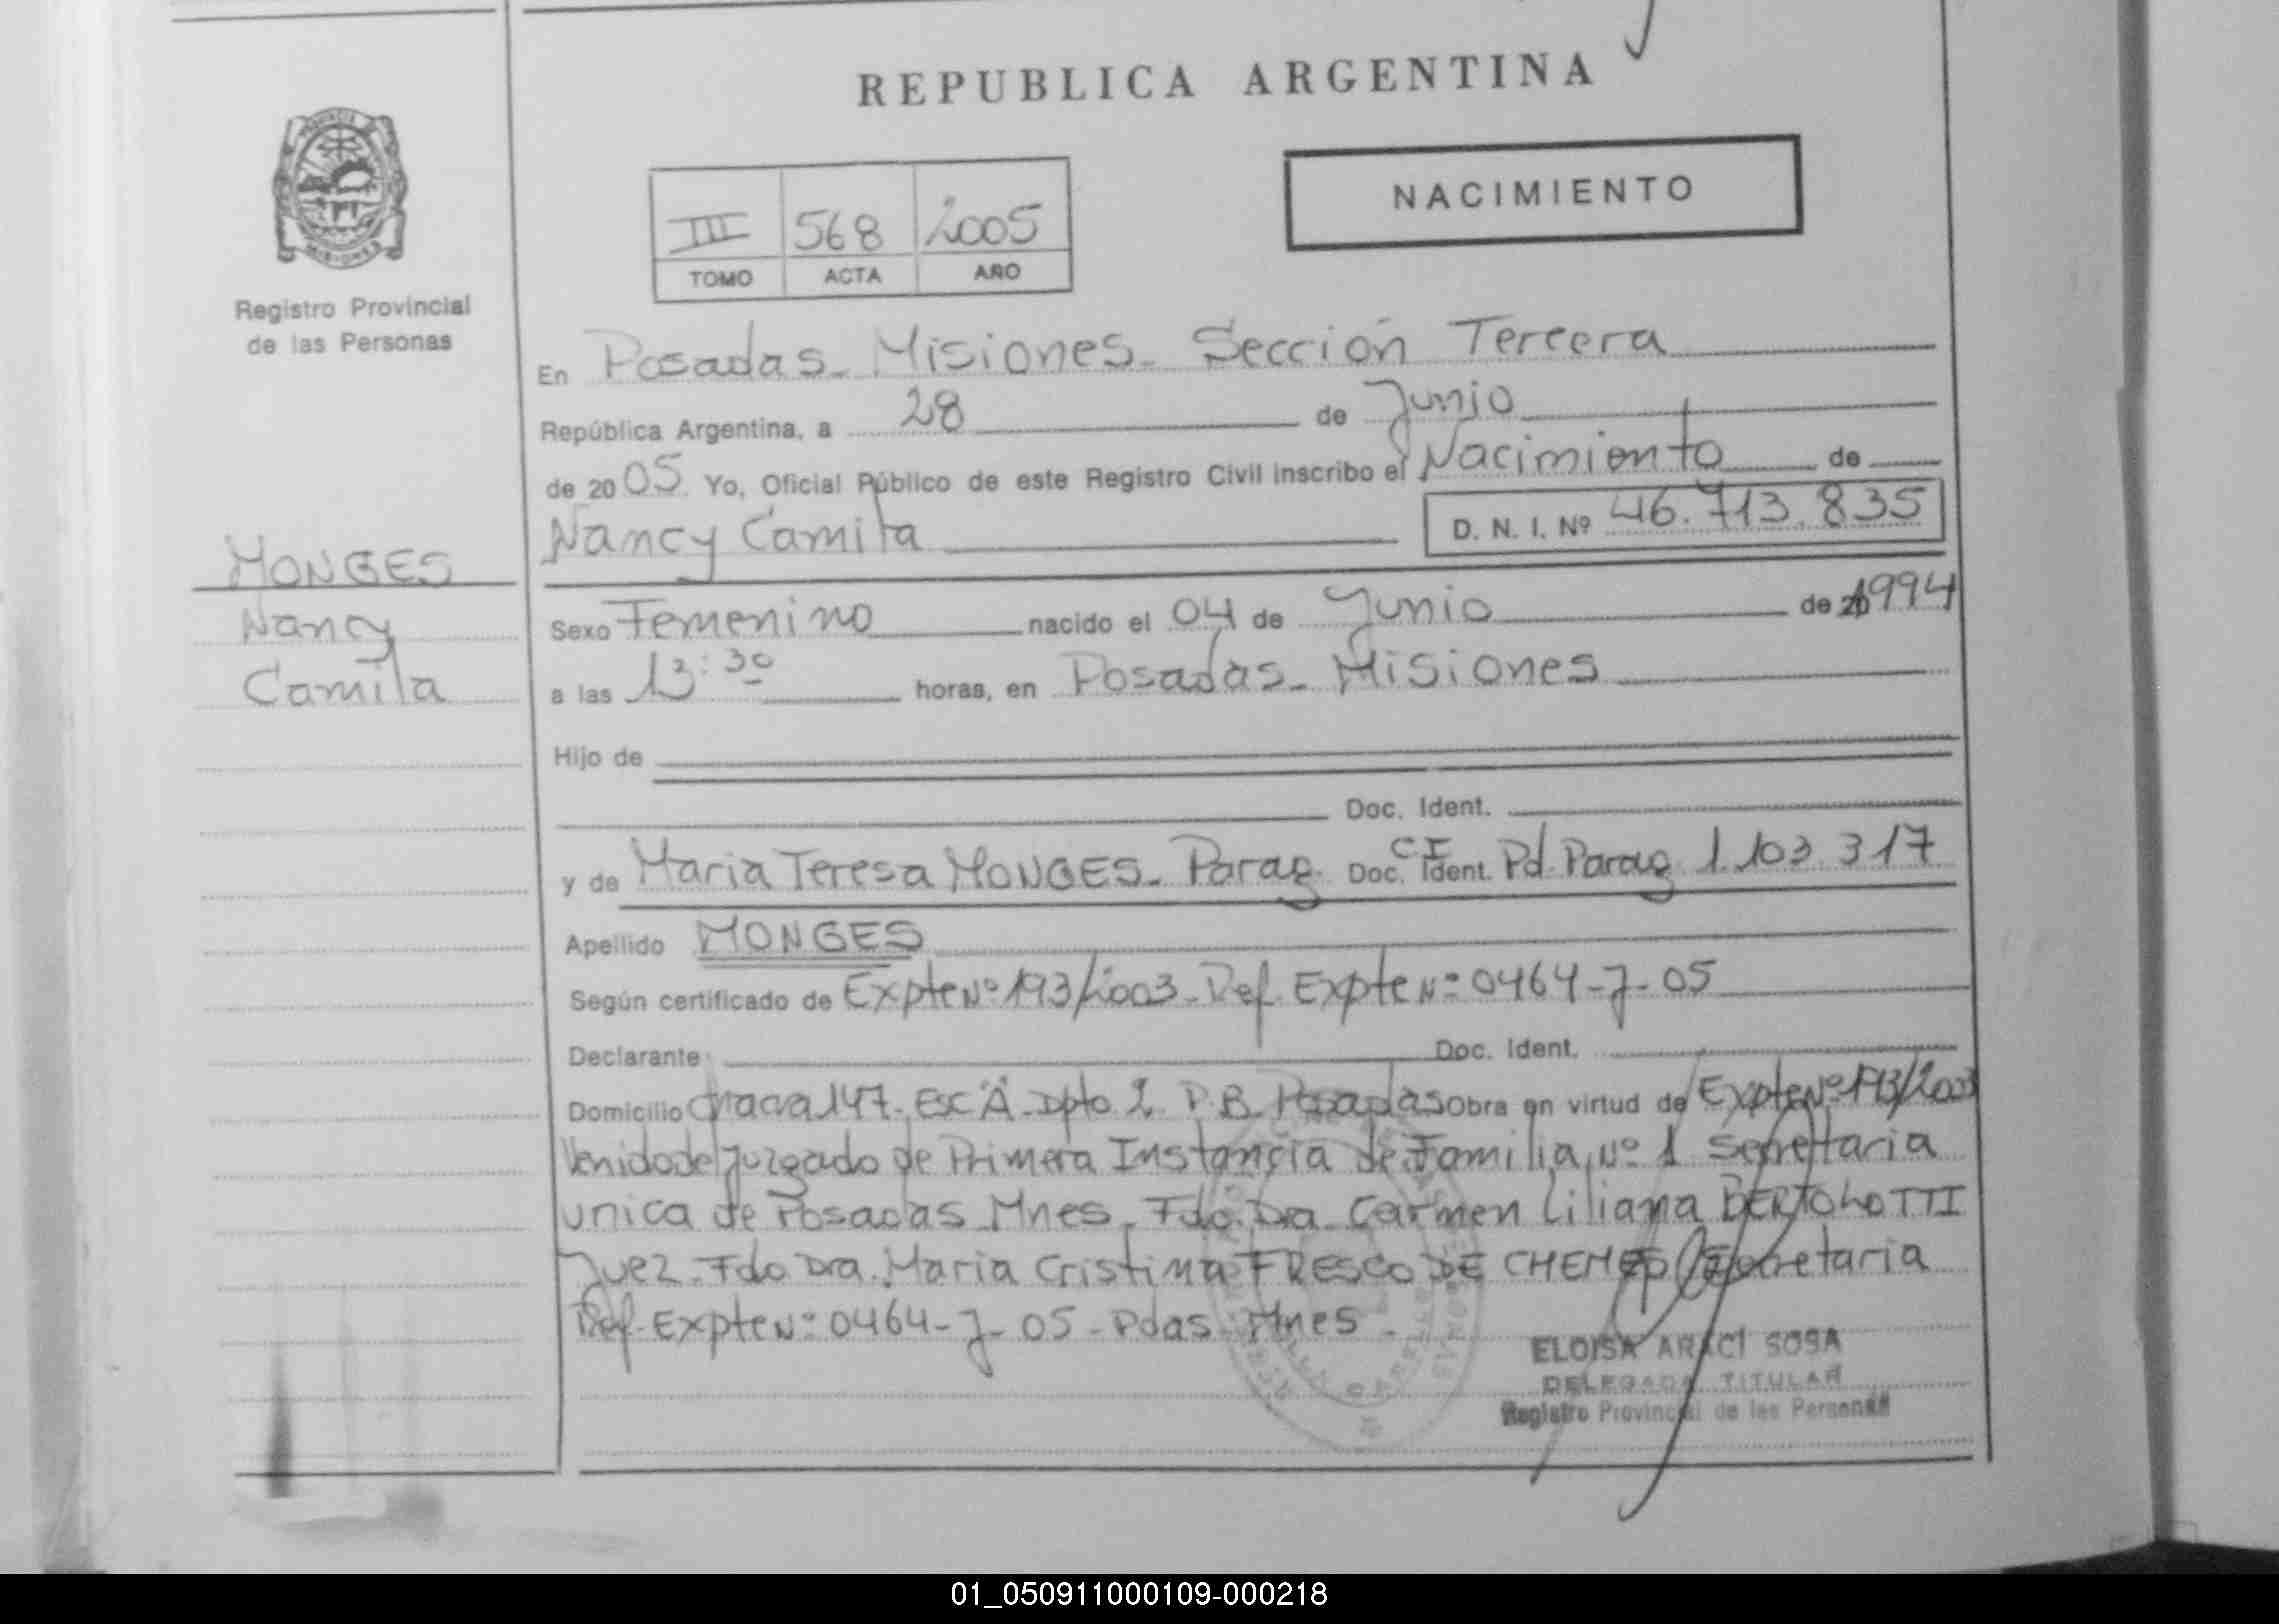 REPUBLICA ARGENTINA
NACIMIENTO
III 568 2005
TOMO ACTA AÑO
Registro Provincial
de las Personas
En Posadas - Misiones - Sección Tercera
República Argentina, a 28 de Junio
de 2005. Yo, Oficial Público de este Registro Civil inscribo el Nacimiento de
Nancy Camila D. N. I. Nº 46.713.835
MONGES
Nancy
Camila
Sexo Femenino nacido el 04 de Junio de 1994
a las 13:30 horas, en Posadas - Misiones
Hijo de
Doc. Ident.
y de Maria Teresa MONGES - Parag. Doc. Ident. CI Pd. Parag 1.103.317
Apellido MONGES
Según certificado de Expte Nº 193/2003 - Ref. Expte Nº 0464-J-05
Declarante Doc. Ident.
Domicilio Chacra 147 - Esc "A" - Dpto 2 P.B. Posadas Obra en virtud de Expte Nº 193/2003
Venido del Juzgado de Primera Instancia de Familia Nº 1 Secretaria
unica de Posadas Mnes. Fdo. Dra. Carmen Liliana BERTOLOTTI
Juez - Fdo Dra. Maria Cristina FRESCO DE CHEMES Secretaria
Ref. Expte Nº 0464-J-05 - Pdas - Mnes.
ELOISA ARACI SOSA
DELEGADA TITULAR
Registro Provincial de las Personas
01_050911000109-000218